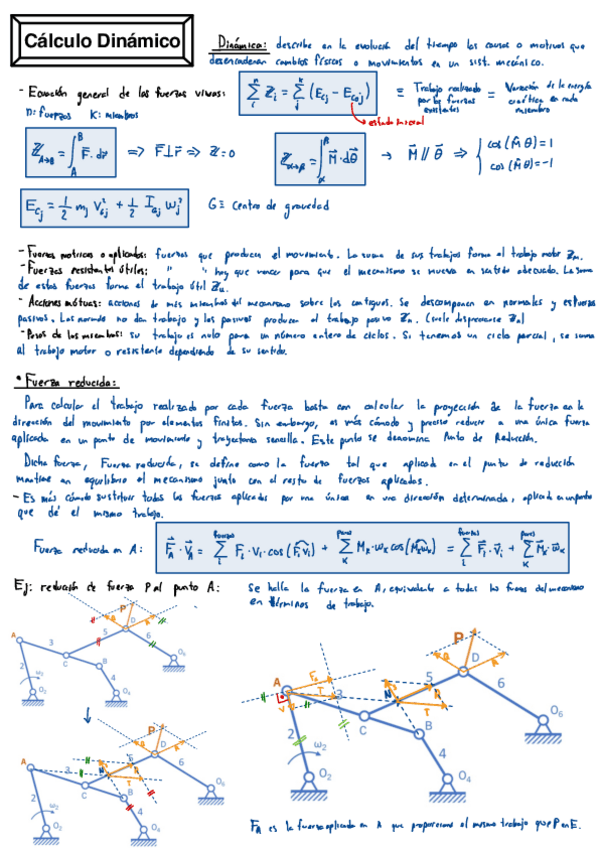 Cálculo Dinámico
Dinámica: describe en la evolución del tiempo las causas o motivos que
desencadenan cambios físicos o movimientos en un sist. mecánico.
- Ecuación general de las fuerzas vivas:
n: fuerzas k: miembros
∑ᵢⁿ Zᵢ = ∑ⱼᵏ (E_cj - E_coj) ≡ Trabajo realizado por las fuerzas existentes = Variación de la energía cinética en cada miembro
estado inicial
Z_A→B = ∫_A^B F⃗·dr⃗ ⇒ F⃗⊥r⃗ ⇒ Z=0
Z_α→β = ∫_α^β M⃗·dθ⃗ → M⃗ // θ⃗ ⇒ { cos(M̂θ)=1
cos(M̂θ)=-1
E_cj = 1/2 m_j V²_Gj + 1/2 I_Gj ω_j² G ≡ Centro de gravedad
- Fuerzas motrices o aplicadas: fuerzas que producen el movimiento. La suma de sus trabajos forma el trabajo motor Z_m.
- Fuerzas resistentes útiles: " " hay que vencer para que el mecanismo se mueva en sentido adecuado. La suma
de estas fuerzas forma el trabajo útil Z_u.
- Acciones mútuas: acciones de mis miembros del mecanismo sobre los contiguos. Se descomponen en normales y esfuerzos
pasivos. Las normales no dan trabajo y los pasivos producen el trabajo pasivo
- Pesos de los miembros: su trabajo es nulo para un número entero de ciclos. Si tenemos un ciclo parcial, se suma
al trabajo motor o resistente dependiendo de su sentido.
• Fuerza reducida:
Para calcular el trabajo realizado por cada fuerza basta con calcular la proyección de la fuerza en la
dirección del movimiento por elementos finitos. Sin embargo, es más cómodo y preciso reducir a una única fuerza
aplicada en un punto de movimiento y trayectoria sencilla. Este punto se denomina Punto de Reducción.
Dicha fuerza, Fuerza reducida, se define como la fuerza tal que aplicada en el punto de reducción
mantiene en equilibrio el mecanismo junto con el resto de fuerzas aplicadas.
- Es más cómodo sustituir todas las fuerzas aplicadas por una única en una dirección determinada, aplicada en un punto
que dé el mismo trabajo.
Fuerza reducida en A: F⃗_A · V⃗_A = ∑ᵢ^fuerzas Fᵢ·Vᵢ·cos(Fᵢ Vᵢ) + ∑_k^pares M_k·ω_k cos(M_k ω_k) = ∑ᵢ^fuerzas F⃗ᵢ·V⃗ᵢ + ∑_k^pares M⃗_k·ω⃗_k
Ej: reducción de fuerza P al punto A:
Se halla la fuerza en A, equivalente a todas las fuerzas del mecanismo
en términos de trabajo.
P
D
A
3
5
6
C
B
2
ω₂
4
O₂
O₄
O₆
P
D
A
3
N
5
6
T
C
B
2
ω₂
4
O₂
O₄
O₆
P
D
A
F_A
T
3
N
5
6
V
T
C
B
2
ω₂
4
O₂
O₄
O₆
F_A es la fuerza aplicada en A que proporciona el mismo trabajo que P en E.